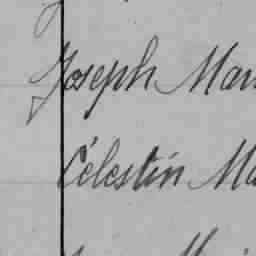 Joseph Mar
Célestin Ma